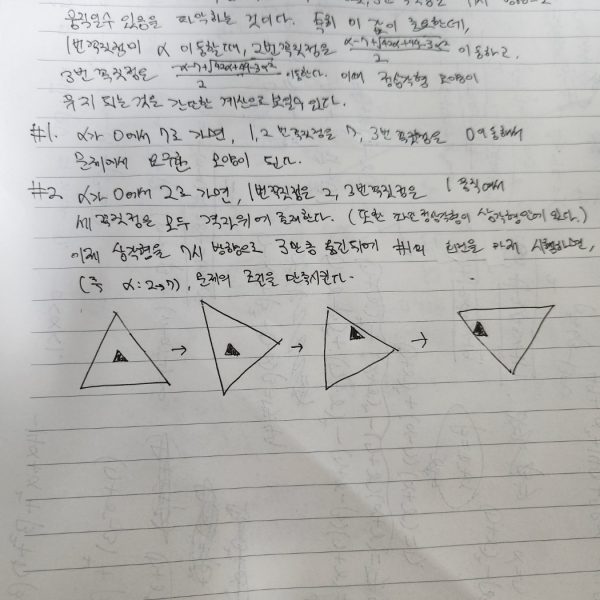 움직일수 있음을 파악하는 것이다. 특히 이 값이 중요한데,
1번 꼭짓점이 α 이동할때, 2번 꼭짓점은 (α-7+√(42α+49-3α²))/2 이동하고,
3번 꼭짓점은 (-α-7+√(42α+49-3α²))/2 이동한다. 이때 정삼각형 모양이
유지 되는 것을 간단한 계산으로 보일수 있다.
#1. α가 0에서 7로 가면, 1,2번 꼭짓점은 7, 3번 꼭짓점은 0 이동해서
문제에서 요구한 모양이 된다.
#2 α가 0에서 2로 가면, 1번꼭짓점은 2, 3번꼭짓점은 1 움직여서
세 꼭짓점은 모두 격자위에 존재한다. (또한 정삼각형이 삼각형안에 있다.)
이제 삼각형을 7시 방향으로 3만큼 옮긴뒤에 #1의 시행하면,
(즉 α: 2→7), 문제의 조건을 만족시킨다.